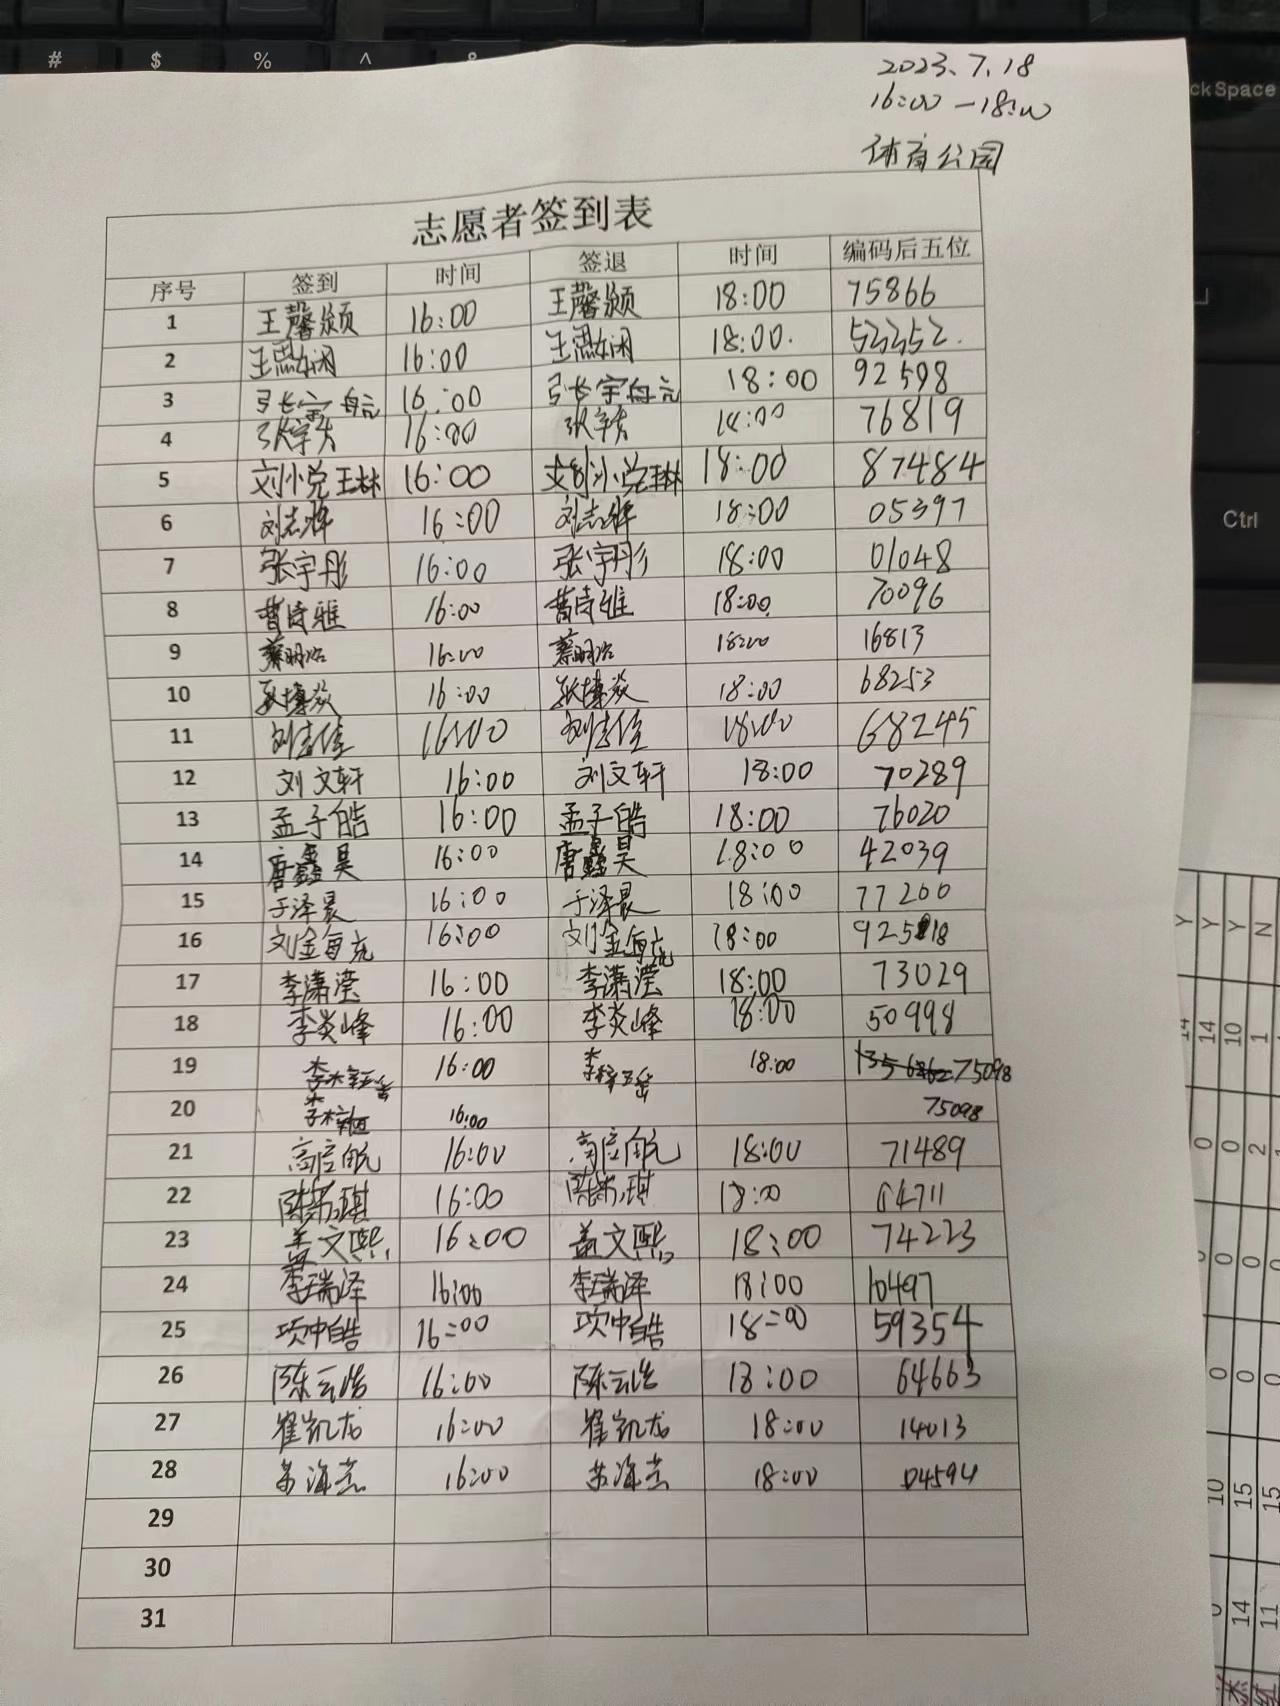 # $ % ^
ckSpace
Ctrl
2023.7.18
16:00 -18:00
体育公园
志愿者签到表
序号 签到 时间 签退 时间 编码后五位
1 王馨颍 16:00 王馨颍 18:00 75866
2 王思娴 16:00 王思娴 18:00. 53352.
3 张宇航 16:00 张宇航 18:00 92598
4 16:00 76819
5 刘小悦王林 16:00 刘小悦王林 18:00 87484
6 刘志烨 16:00 刘志烨 18:00 05397
7 张宇彤 16:00 张宇彤 18:00 01048
8 曹诗雅 16:00 曹诗雅 18:00 70096
9 蔡明治 16:00 蔡明治 18:00 16813
10 16:00 18:00 68253
11 16:00 18:00 68245
12 刘文轩 16:00 刘文轩 18:00 70289
13 孟子皓 16:00 孟子皓 18:00 76020
14 唐鑫昊 16:00 唐鑫昊 18:00 42039
15 于泽晨 16:00 于泽晨 18:00 77200
16 16:00 18:00 92518
17 李潇滢 16:00 李潇滢 18:00 73029
18 李炎峰 16:00 李炎峰 18:00 50998
19 16:00 18:00 75098
20 16:00 75098
21 16:00 18:00 71489
22 16:00 18:00 64711
23 盖文熙 16:00 盖文熙 18:00 74223
24 李瑞泽 16:00 李瑞泽 18:00 10497
25 项中皓 16:00 项中皓 18:00 59354
26 陈云浩 16:00 陈云浩 18:00 64663
27 崔凯龙 16:00 崔凯龙 18:00 14013
28 苏海杰 16:00 苏海杰 18:00 04594
29
30
31